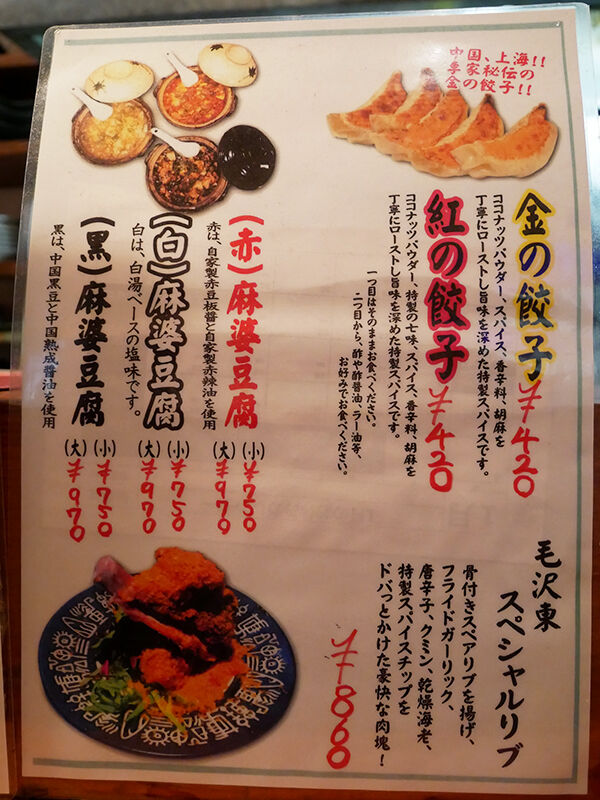 中国、上海!!
専家秘伝の
金の餃子!!
金の餃子 ¥420
ココナッツパウダー、スパイス、香辛料、胡麻を
丁寧にローストし旨味を深めた特製スパイスです。
紅の餃子 ¥420
ココナッツパウダー、特製の七味、スパイス、香辛料、胡麻を
丁寧にローストし旨味を深めた特製スパイスです。
一つ目はそのままお食べください。
二つ目から、酢や酢醤油、ラー油等、
お好みでお食べください。
(赤)麻婆豆腐
(小)¥750
(大)¥970
赤は、自家製赤豆板醤と自家製赤辣油を使用
(白)麻婆豆腐
(小)¥750
(大)¥970
白は、白湯ベースの塩味です。
(黒)麻婆豆腐
(小)¥750
(大)¥970
黒は、中国黒豆と中国熟成醬油を使用
毛沢東
スペシャルリブ
骨付きスペアリブを揚げ、
フライドガーリック、
唐辛子、クミン、乾燥海老、
特製スパイスチップを
ドバっとかけた豪快な肉塊!
¥860